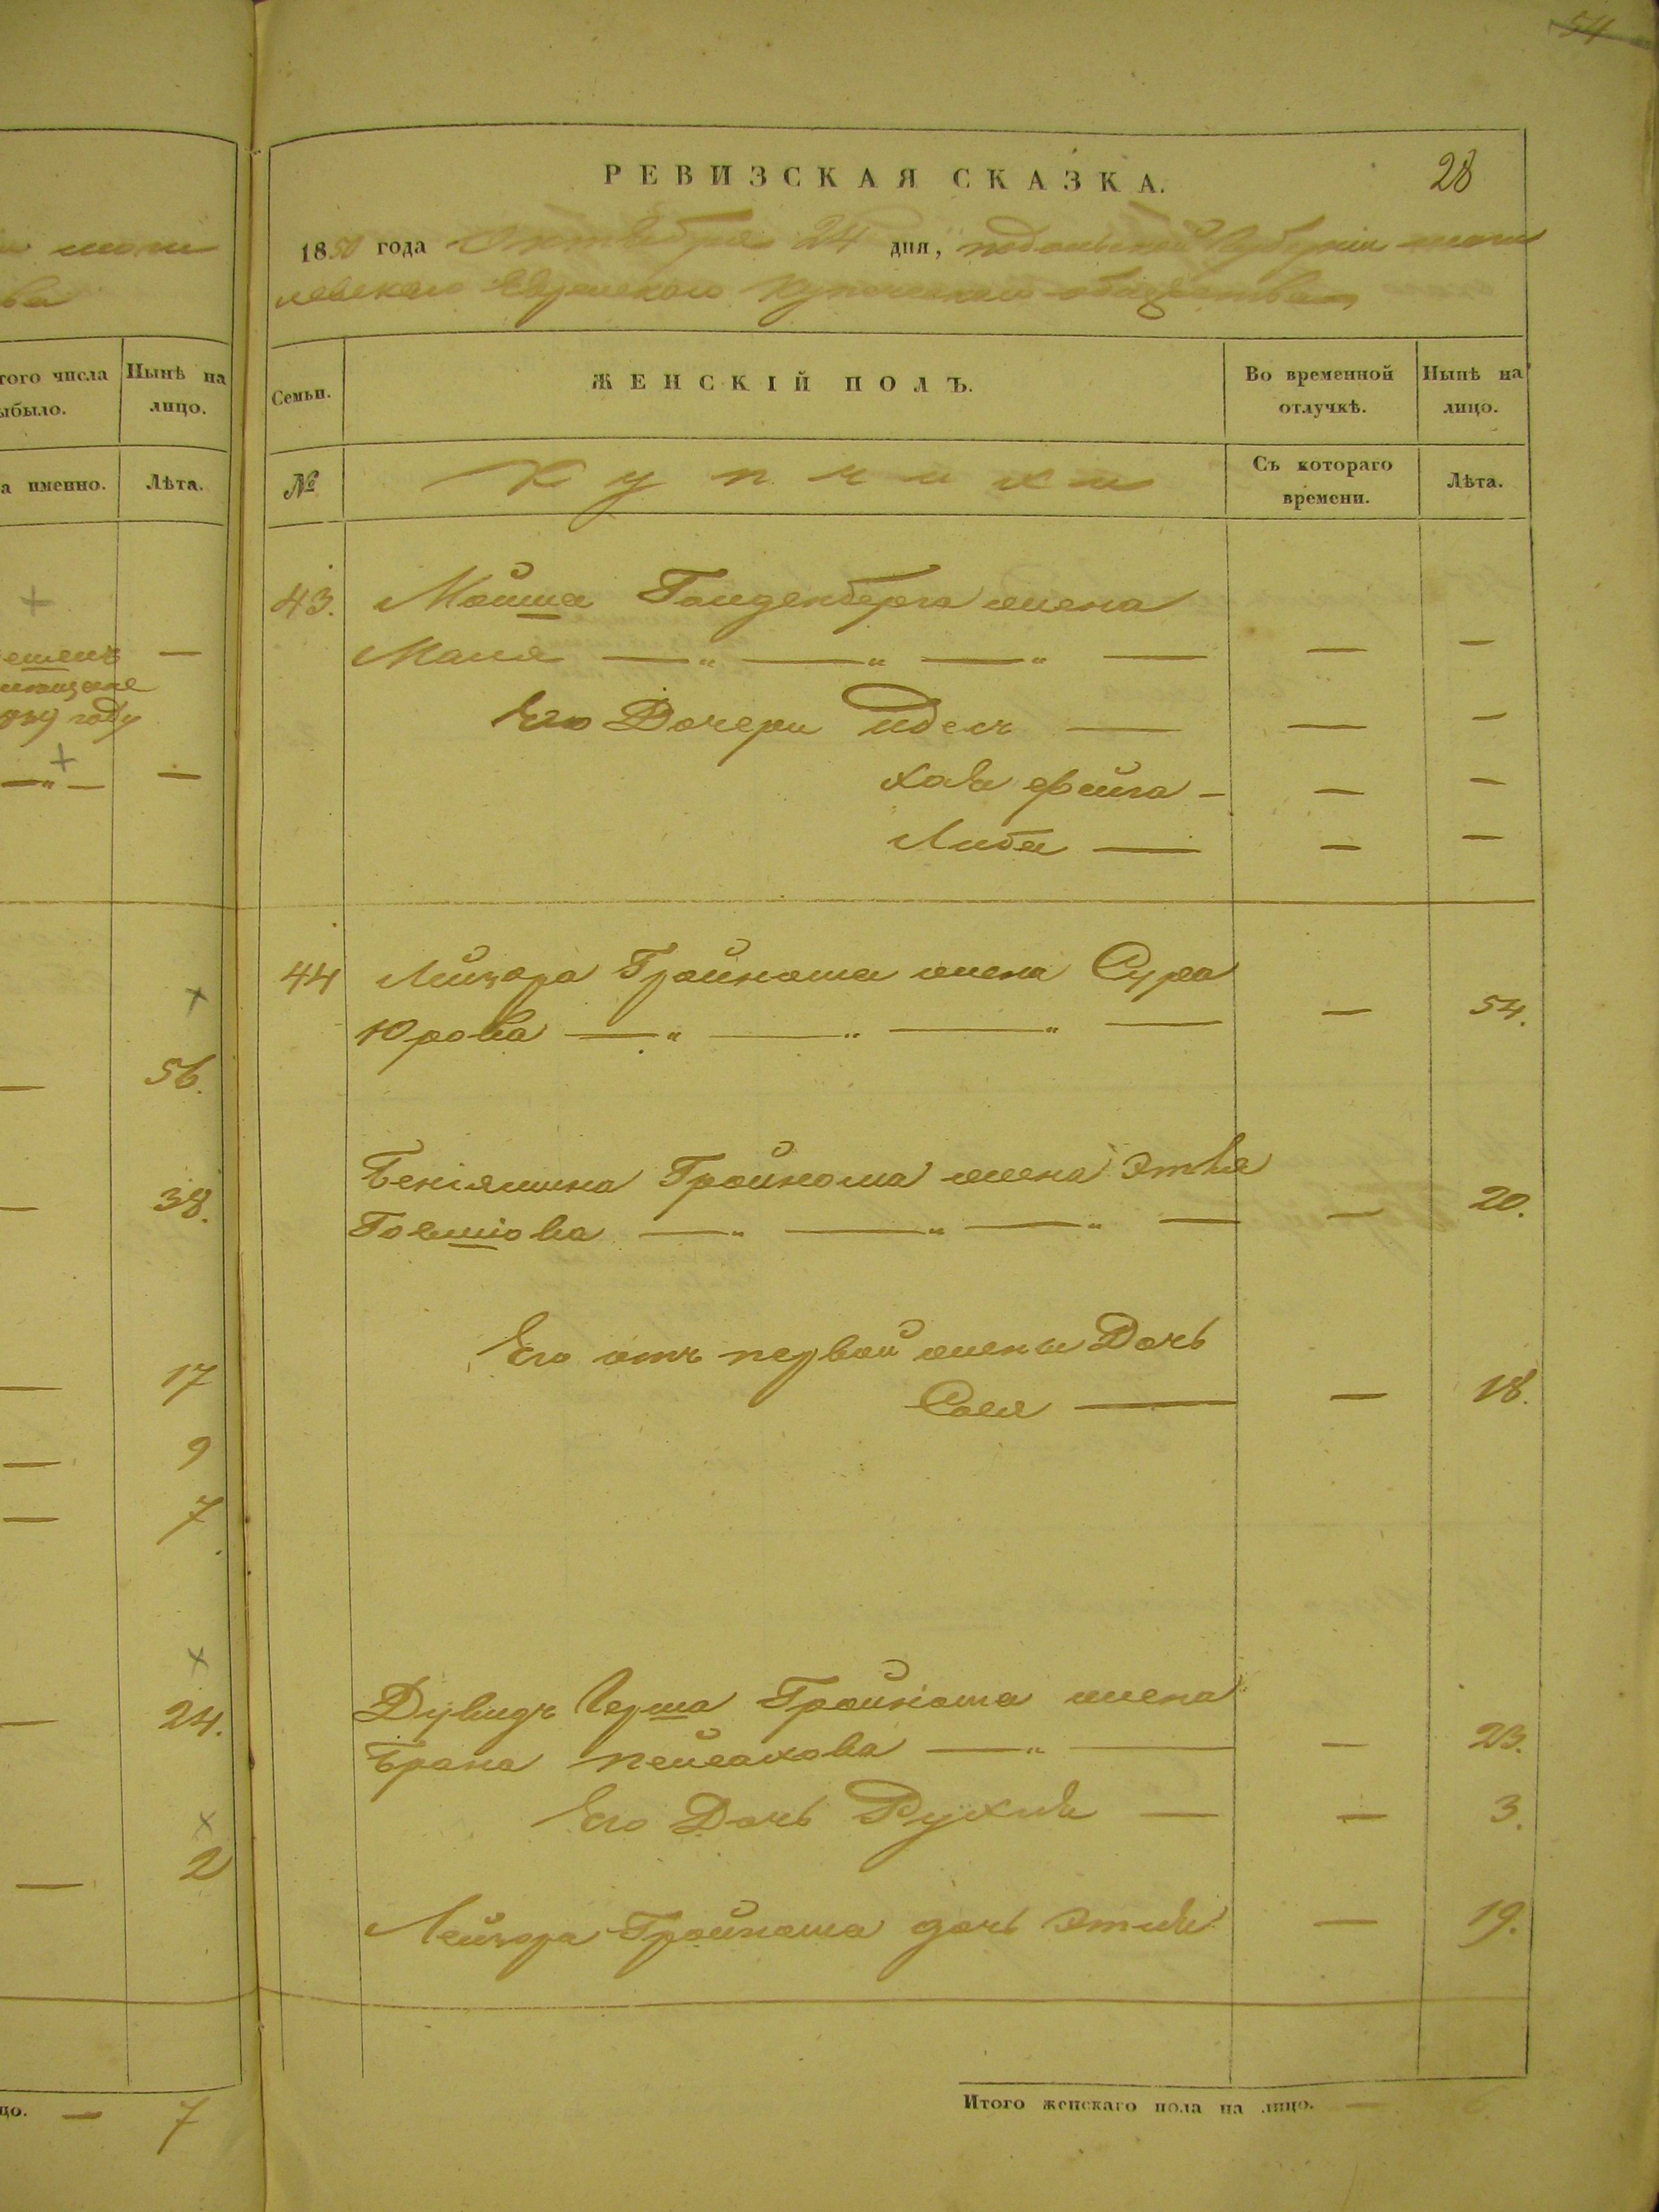 54
РЕВИЗСКАЯ СКАЗКА.
28
1850 года Октября 24 дня, подольской Губерніи моги
левского Еврейского Купеческого общества
того числа
выбыло.
Нынѣ на
лицо.
Семьи.
ЖЕНСКІЙ ПОЛЪ.
Во временной
отлучкѣ.
Нынѣ на
лицо.
а именно.
Лѣта.
№
Купчихи
Съ котораго
времени.
Лѣта.
43. Мойша Гольденберга жена
Маля — „ — „ — „ — — —
году
Его Дочери Идесъ — — —
Хава фейга — — —
Либа — — —
44 Лейзора Гройноша жена Сура
Юрова — „ — „ — „ — — 54.
56.
Беніямина Гройноша жена Этля
Говшіова — „ — „ — „ — — 20.
38.
Его отъ первой жены Дочь
Сося — — 18.
17
9
7
Дувидъ Герша Гройноша жена
Брана пейсахова — „ — — 23.
24.
Его Дочь Рухля — — 3.
2
Лейзора Гройноша дочь Этля — 19.
цо. — 7
Итого женскаго пола на лицо. — 6